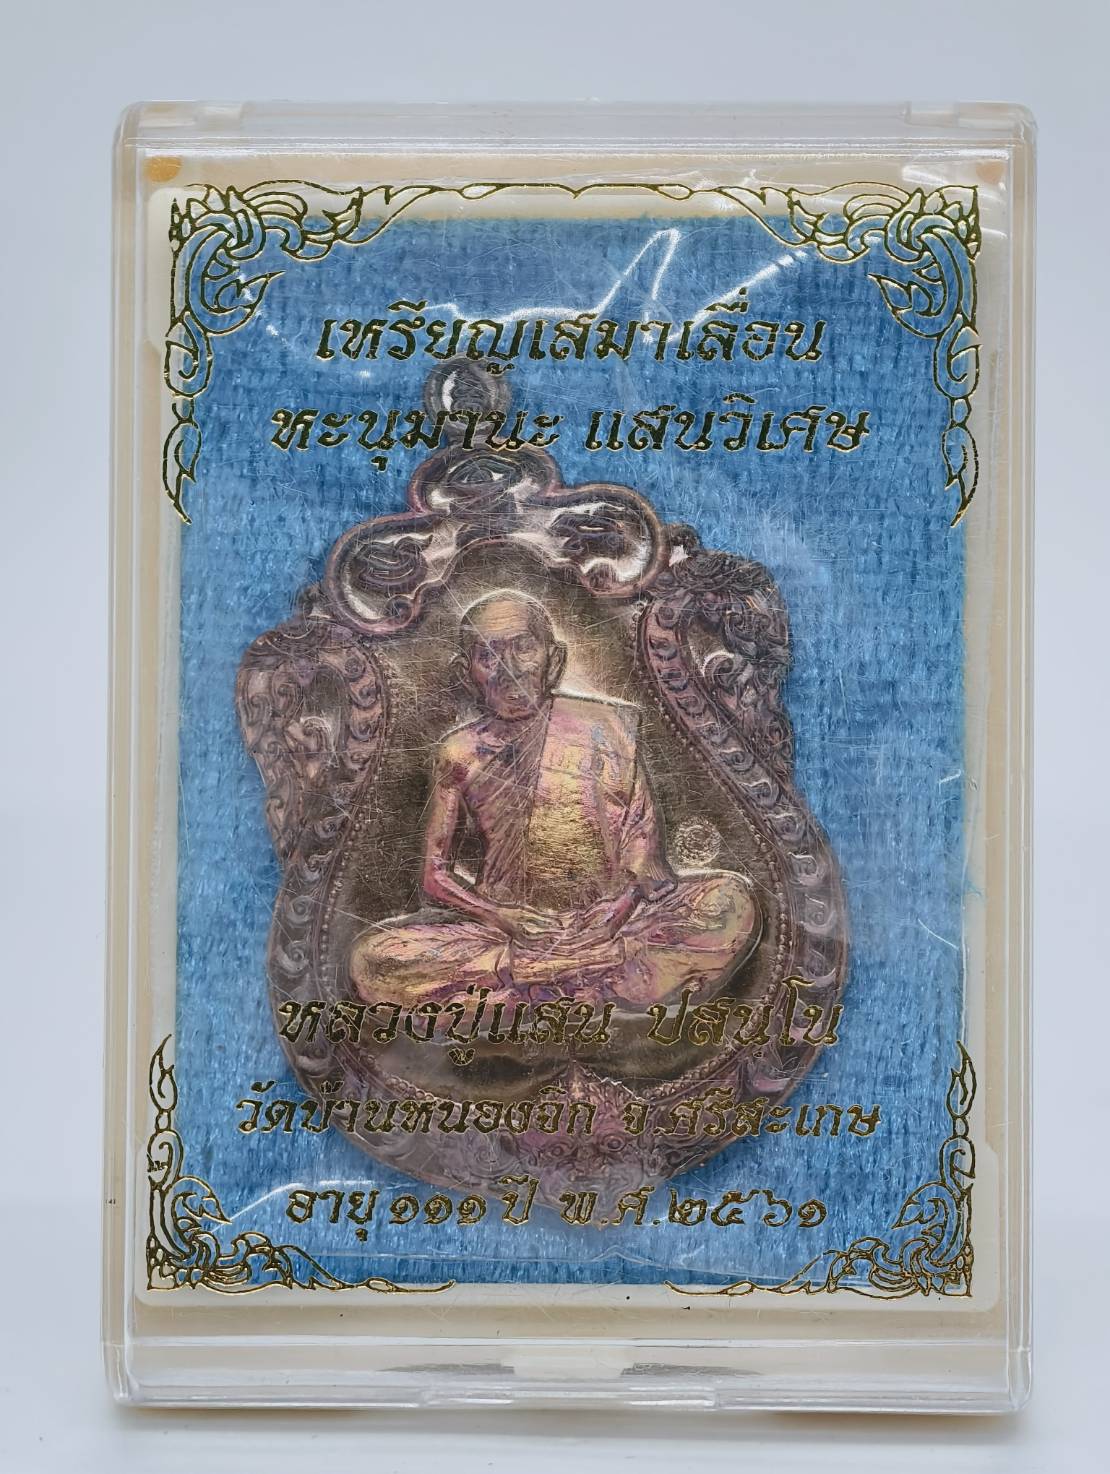 เหรียญเสมาเลื่อน
หะนุมานะ แสนวิเศษ
หลวงปู่แสน ปสนฺโน
วัดบ้านหนองจิก จ.ศรีสะเกษ
อายุ ๑๑๑ ปี พ.ศ.๒๕๖๑